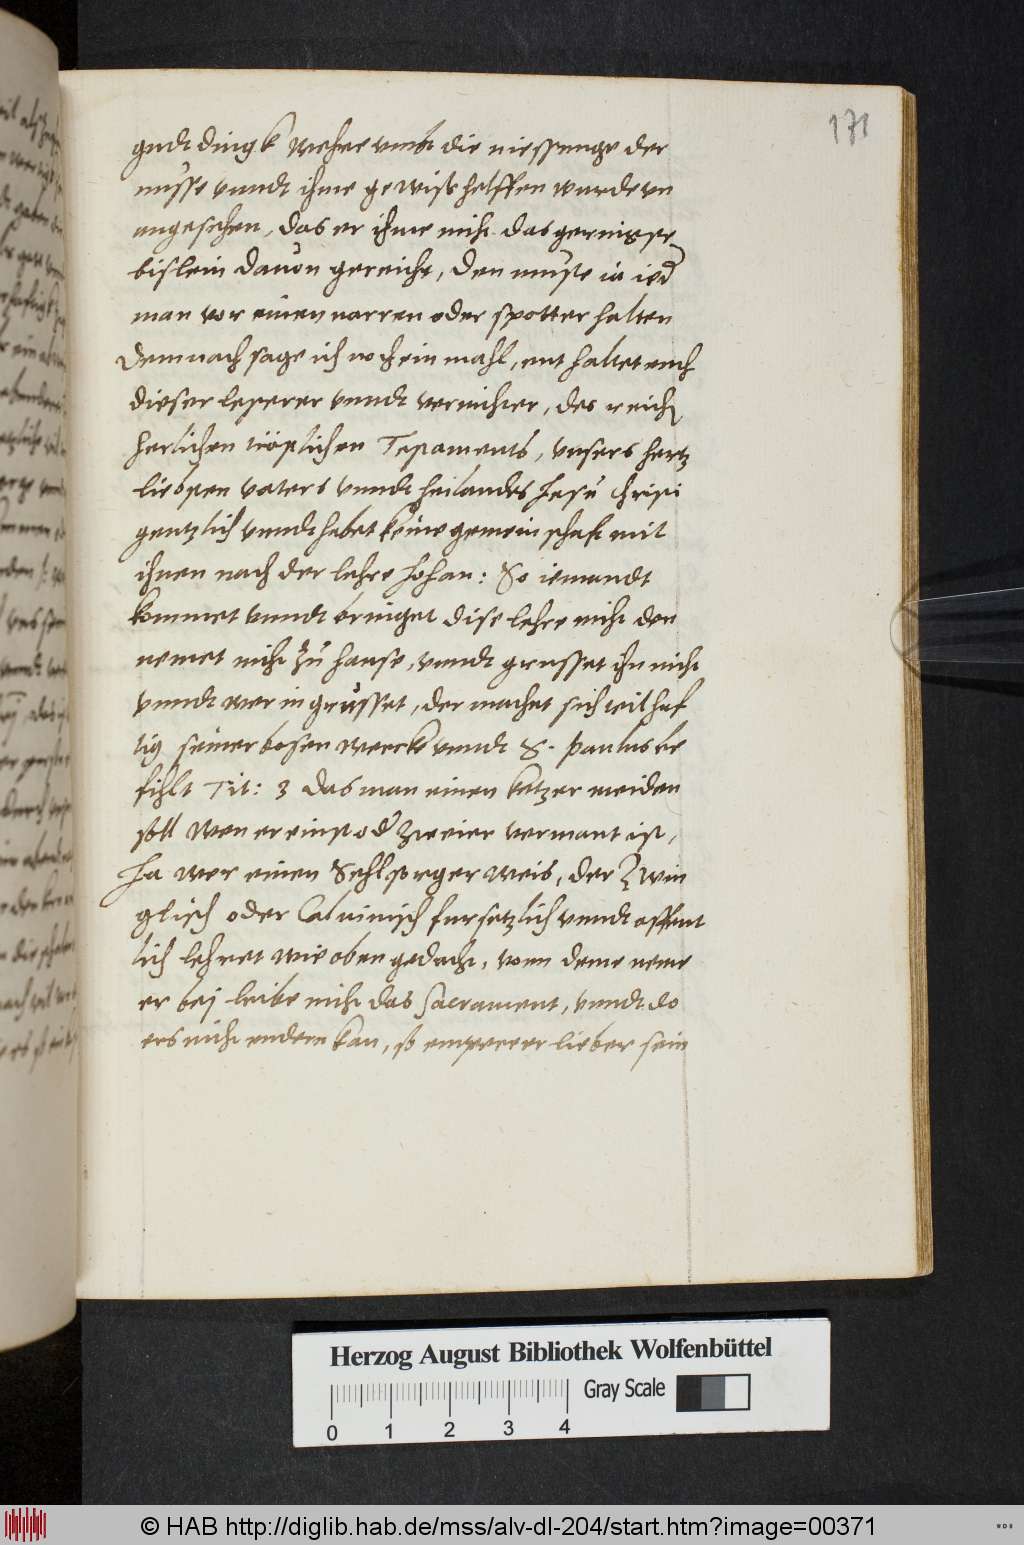 171
gudt dingk wehre umb die niessunge der
nüsse vnndt ihme gewiß helffen wurde vn
angesehen, das er ihme nicht das geringste
bislein dauon gereicht, den muste ia ied
man vor einen narren oder spotter halten
Demnach sage ich noch ein mahl, enthaltet euch
dieser lesterer vnndt vernichter, des reich
herlichen tröstlichen Testaments, vnsers hertz
liebsten vaters vnndt heilandes Jesu christi
gentzlich vnndt habet keine gemeinschaft mit
ihnen nach der lehre Johan: So iemandt
kommet vnndt bringet dise lehre nicht den
nemet nicht zu hause, vnndt grusset ihn nicht
vnndt wer in grüsset, der machet sich teilhaf
tig seiner bosen wercke vnndt S. Paulus be
fihlt Tit: 3 das man einen ketzer meiden
soll wen er einst od zweier vermant ist,
Ja wer einen Sehlsorger weis, der Zwin
glisch oder Caluinisch fursetzlich vnndt offent
lich lehret wie oben gedacht, vonn deme neme
er bej leibe nicht das sacrament, vnndt do
ers nicht endern kan, so empere er lieber sein
Herzog August Bibliothek Wolfenbüttel
0 1 2 3 4
Gray Scale
© HAB http://diglib.hab.de/mss/alv-dl-204/start.htm?image=00371